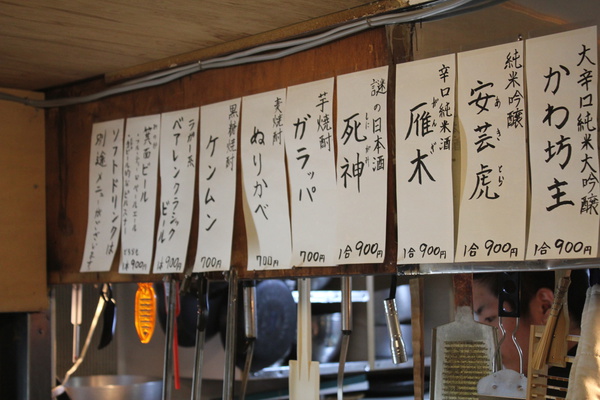 大辛口純米大吟醸
かわ坊主
1合900円
純米吟醸
安芸虎
あき とら
1合900円
辛口純米酒
雁木
がんぎ
1合900円
謎の日本酒
死神
しにがみ
1合900円
芋焼酎
ガラッパ
700円
麦焼酎
ぬりかべ
700円
黒糖焼酎
ケンムン
700円
ラガー系
ベアレンクラシック
ビール
900円
箕面ビール
900円
ソフトドリンクは
別途メニューがございます